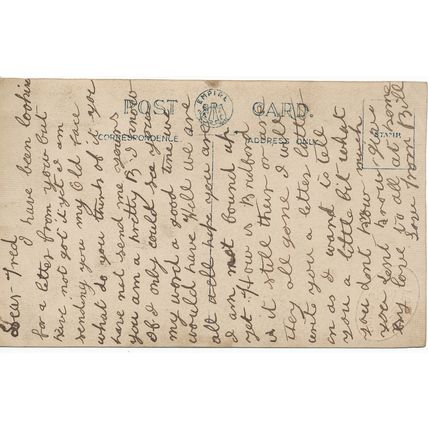 EMPIRE
POST CARD.
CORRESPONDENCE.
ADDRESS ONLY
STAMP
Dear Fred
I have been lookin
for a letter from you but
have not got it yet I am
sending you my Old face
what do you think of it you
have not send me yours
you am a pretty B. I know
If I only could see you
my word a good time
would have Well we are
alt well hope you are
I am not bound up
yet. How is Bedford
is it still there or as
they all gone I will
write you a letter later
on as I want to tell
you a little bit what
you dont know much
you sent know Give
my love to all at some
Love from Bill